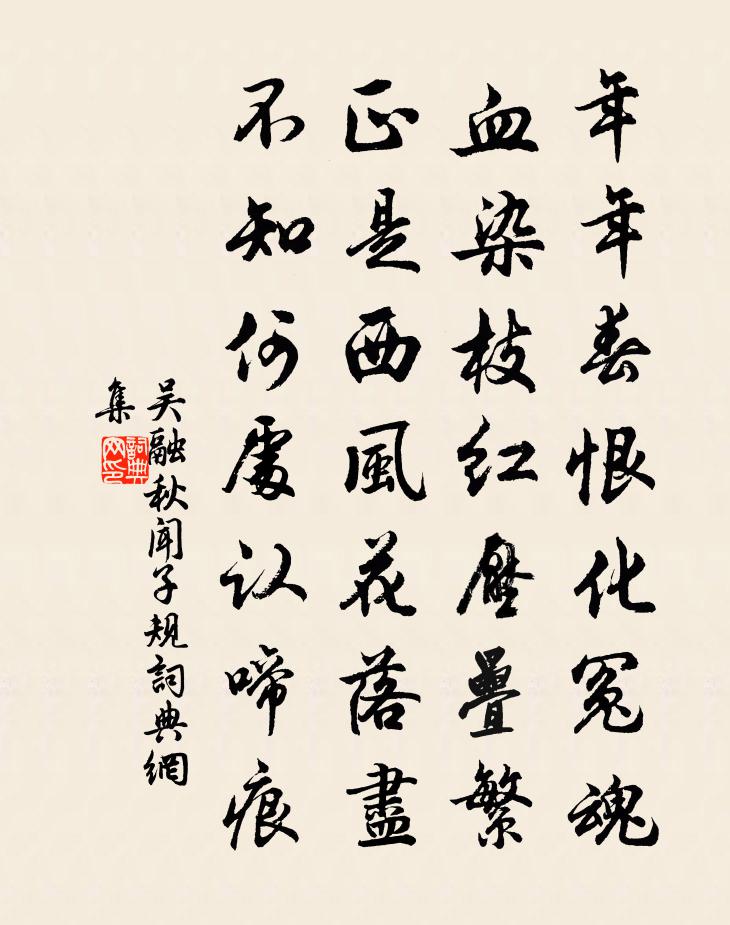 年年春恨化冤魂
血染枝紅壓疊繁
正是西風花落盡
不知何處認啼痕
吳融秋聞子規詞典網
集
詞典網印